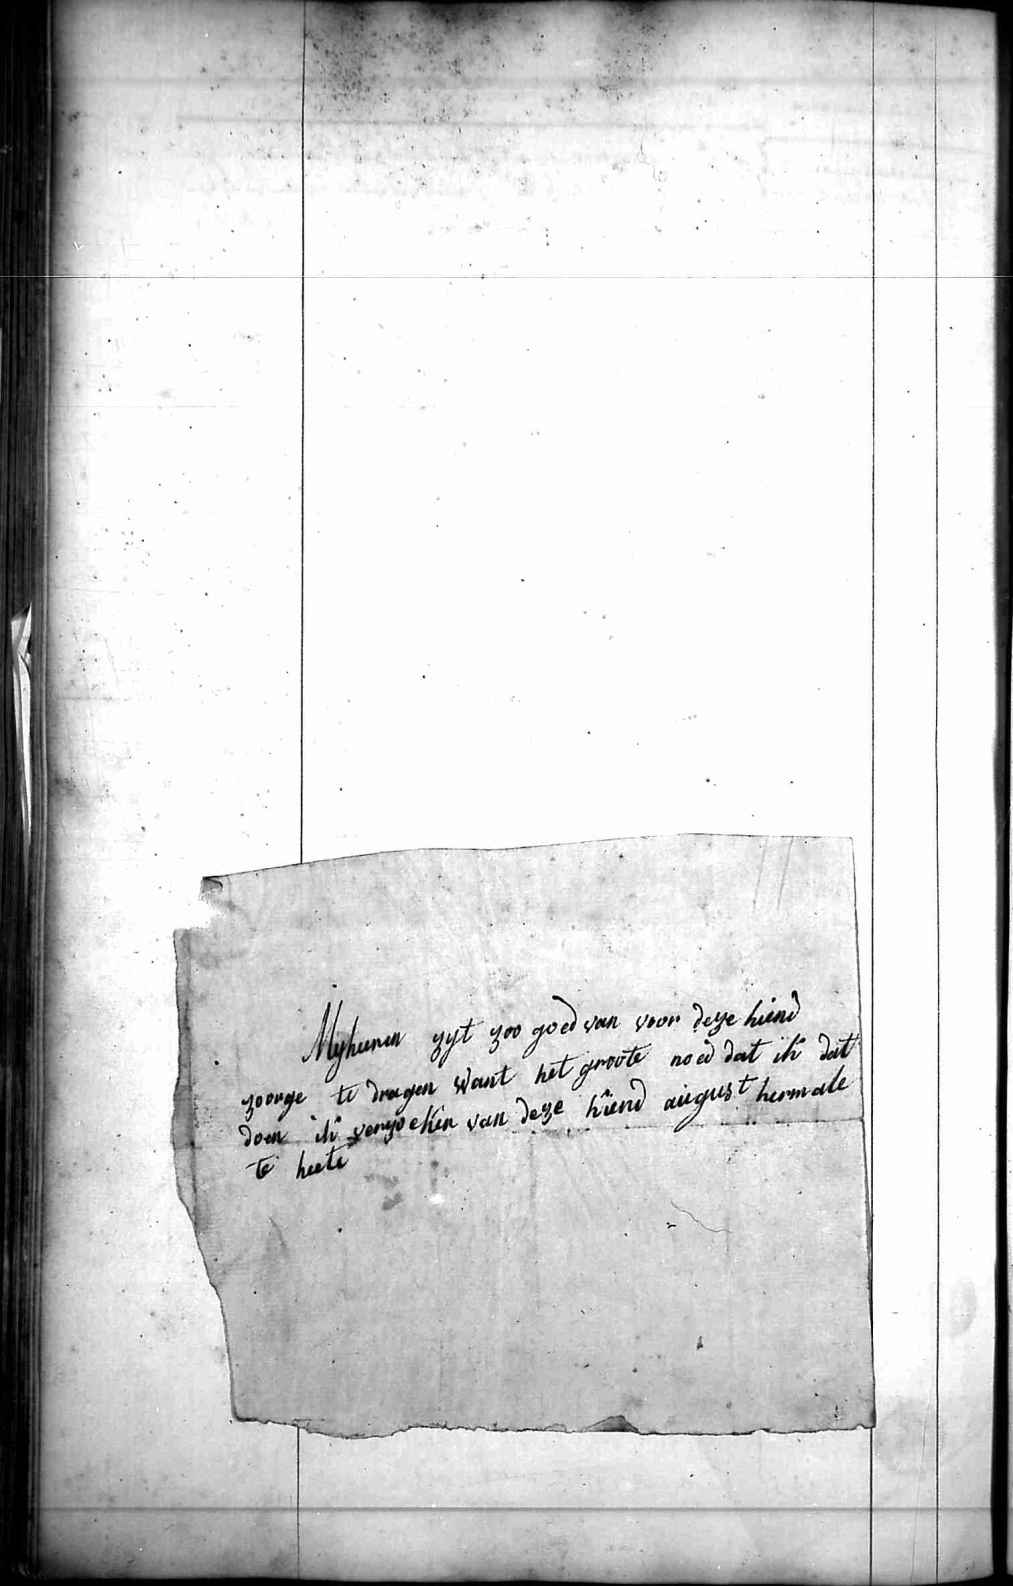 Myheeren zyt zoo goed van voor deze kiend
zoorge te dragen want het groote noed dat ik dat
doen ik verzoeken van deze kiend august hermale
te heete